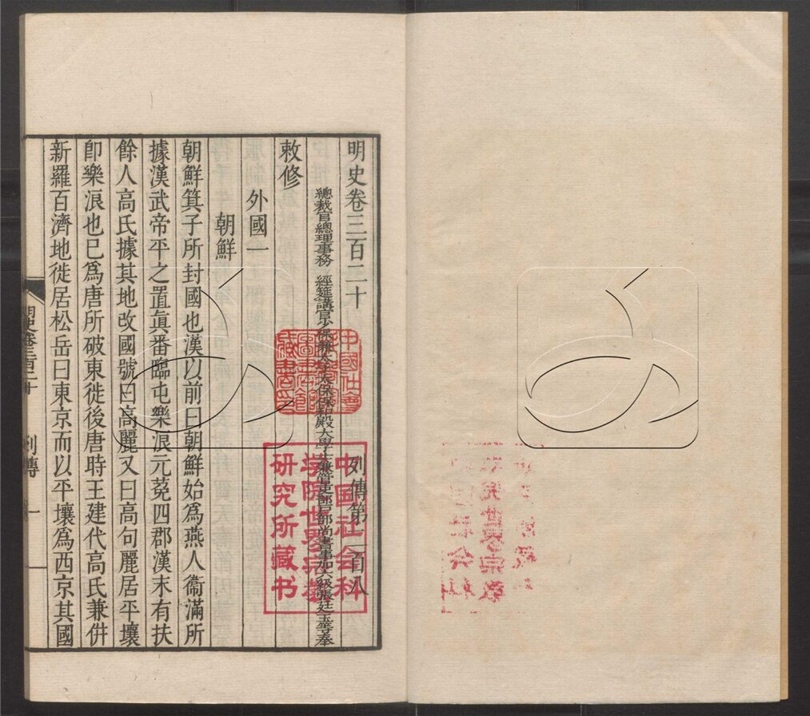 明史卷三百二十　列傳第二百八
總裁官總理事務　經筵講官少保兼太子太保保和殿大學士兼管吏部戶部尚書事加六級張廷玉等奉
敕修
外國一
朝鮮
朝鮮箕子所封國也漢以前曰朝鮮始為燕人衞滿所
據漢武帝平之置真番臨屯樂浪元菟四郡漢末有扶
餘人高氏據其地改國號曰高麗又曰高句麗居平壤
卽樂浪也已為唐所破東徙後唐時王建代高氏兼倂
新羅百濟地徙居松岳曰東京而以平壤為西京其國
明史卷三百二十　列傳　一
中國社會
圖書館
藏書
中国社会科
学院世界宗教
研究所藏书